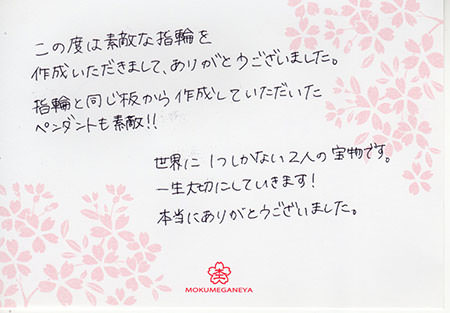 この度は素敵な指輪を
作成いただきまして、ありがとうございました。
指輪と同じ板から作成していただいた
ペンダントも素敵!!
世界に1つしかない2人の宝物です。
一生大切にしていきます!
本当にありがとうございました。
MOKUMEGANEYA